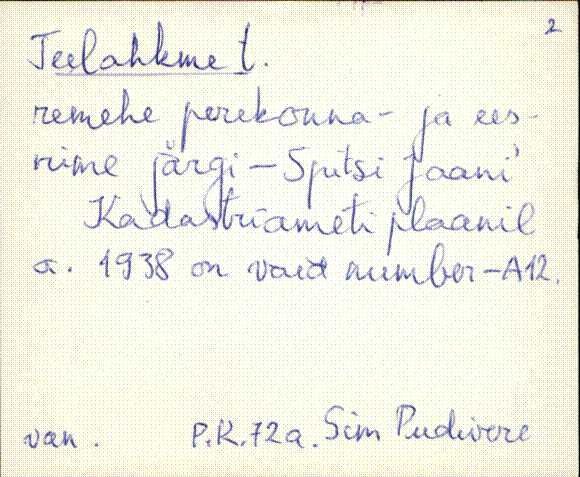 2
Teelahkme t.
remehe perekonna- ja ees-
nime järgi – Spitsi Jaani
Kadastriameti plaanil
a. 1938 on vaid number – A12.
van. P.K. 72a. Sim Pudivere